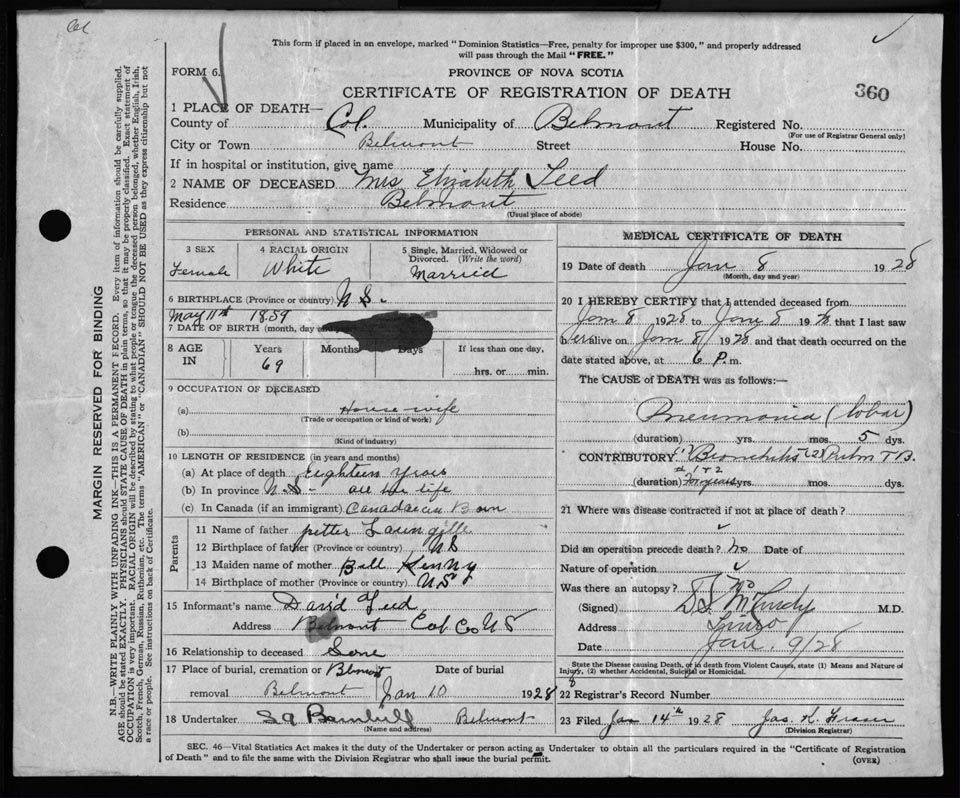 Col
This form if placed in an envelope, marked "Dominion Statistics—Free, penalty for improper use $300," and properly addressed
will pass through the Mail "FREE."
FORM 6.
PROVINCE OF NOVA SCOTIA
CERTIFICATE OF REGISTRATION OF DEATH
360
1 PLACE OF DEATH—
County of Col. Municipality of Belmont Registered No.
(For use of Registrar General only)
City or Town Belmont Street House No.
If in hospital or institution, give name
2 NAME OF DECEASED Mrs Elizabeth Leed
Residence Belmont
(Usual place of abode)
PERSONAL AND STATISTICAL INFORMATION
3 SEX 4 RACIAL ORIGIN 5 Single, Married, Widowed or
Divorced. (Write the word)
Female White Married
6 BIRTHPLACE (Province or country) N S.
May 11th 1859
7 DATE OF BIRTH (month, day
8 AGE IN Years Months Days If less than one day,
69 hrs. or min.
9 OCCUPATION OF DECEASED
(a) House-wife
(Trade or occupation or kind of work)
(b)
(Kind of industry)
10 LENGTH OF RESIDENCE (in years and months)
(a) At place of death Eighteen years
(b) In province N.S- all her life
(c) In Canada (if an immigrant) Canadaian Born
Parents
11 Name of father petter Laungille
12 Birthplace of father (Province or country) NS
13 Maiden name of mother Bell Kenny
14 Birthplace of mother (Province or country) NS
15 Informant's name David Leed
Address Belmont Col Co NS
16 Relationship to deceased Sone
17 Place of burial, cremation or Belmont Date of burial
removal Belmont Jan 10 1928
18 Undertaker Belmont
(Name and address)
MEDICAL CERTIFICATE OF DEATH
19 Date of death Jan 8 1928
(Month, day and year)
20 I HEREBY CERTIFY that I attended deceased from
Jan 8 1928 to Jan 8 1928 that I last saw
her alive on Jan 8/ 1928 and that death occurred on the
date stated above, at 6 P.m.
The CAUSE of DEATH was as follows:
Pneumonia (lobar)
(duration) yrs. mos. 5 dys.
CONTRIBUTORY (1) Bronchitis (2) Pulm T B.
(duration) yrs. mos. dys.
21 Where was disease contracted if not at place of death?
Did an operation precede death? no Date of
Nature of operation
Was there an autopsy? No
(Signed) McCurdy M.D.
Address Truro
Date Jan. 9/28
State the Disease causing Death, or in death from Violent Causes, state (1) Means and Nature of
Injury, (2) whether Accidental, Suicidal or Homicidal.
22 Registrar's Record Number
23 Filed Jan 14th 1928 Jas. K. Fraser
(Division Registrar)
SEC. 46—Vital Statistics Act makes it the duty of the Undertaker or person acting as Undertaker to obtain all the particulars required in the "Certificate of Registration
of Death" and to file the same with the Division Registrar who shall issue the burial permit.
(OVER)
MARGIN RESERVED FOR BINDING
N.B.—WRITE PLAINLY WITH UNFADING INK—THIS IS A PERMANENT RECORD. Every item of information should be carefully supplied.
AGE should be stated EXACTLY. PHYSICIANS should STATE CAUSE OF DEATH in plain terms, so that it may be properly classified. Exact statement of
OCCUPATION is very important. RACIAL ORIGIN will be described by stating to what people or tongue the deceased person belonged, whether English, Irish,
Scotch, French, German, Russian, Ruthenian, etc. The terms "AMERICAN" or "CANADIAN" SHOULD NOT BE USED as they express citizenship but not
a race or people. See instructions on back of Certificate.